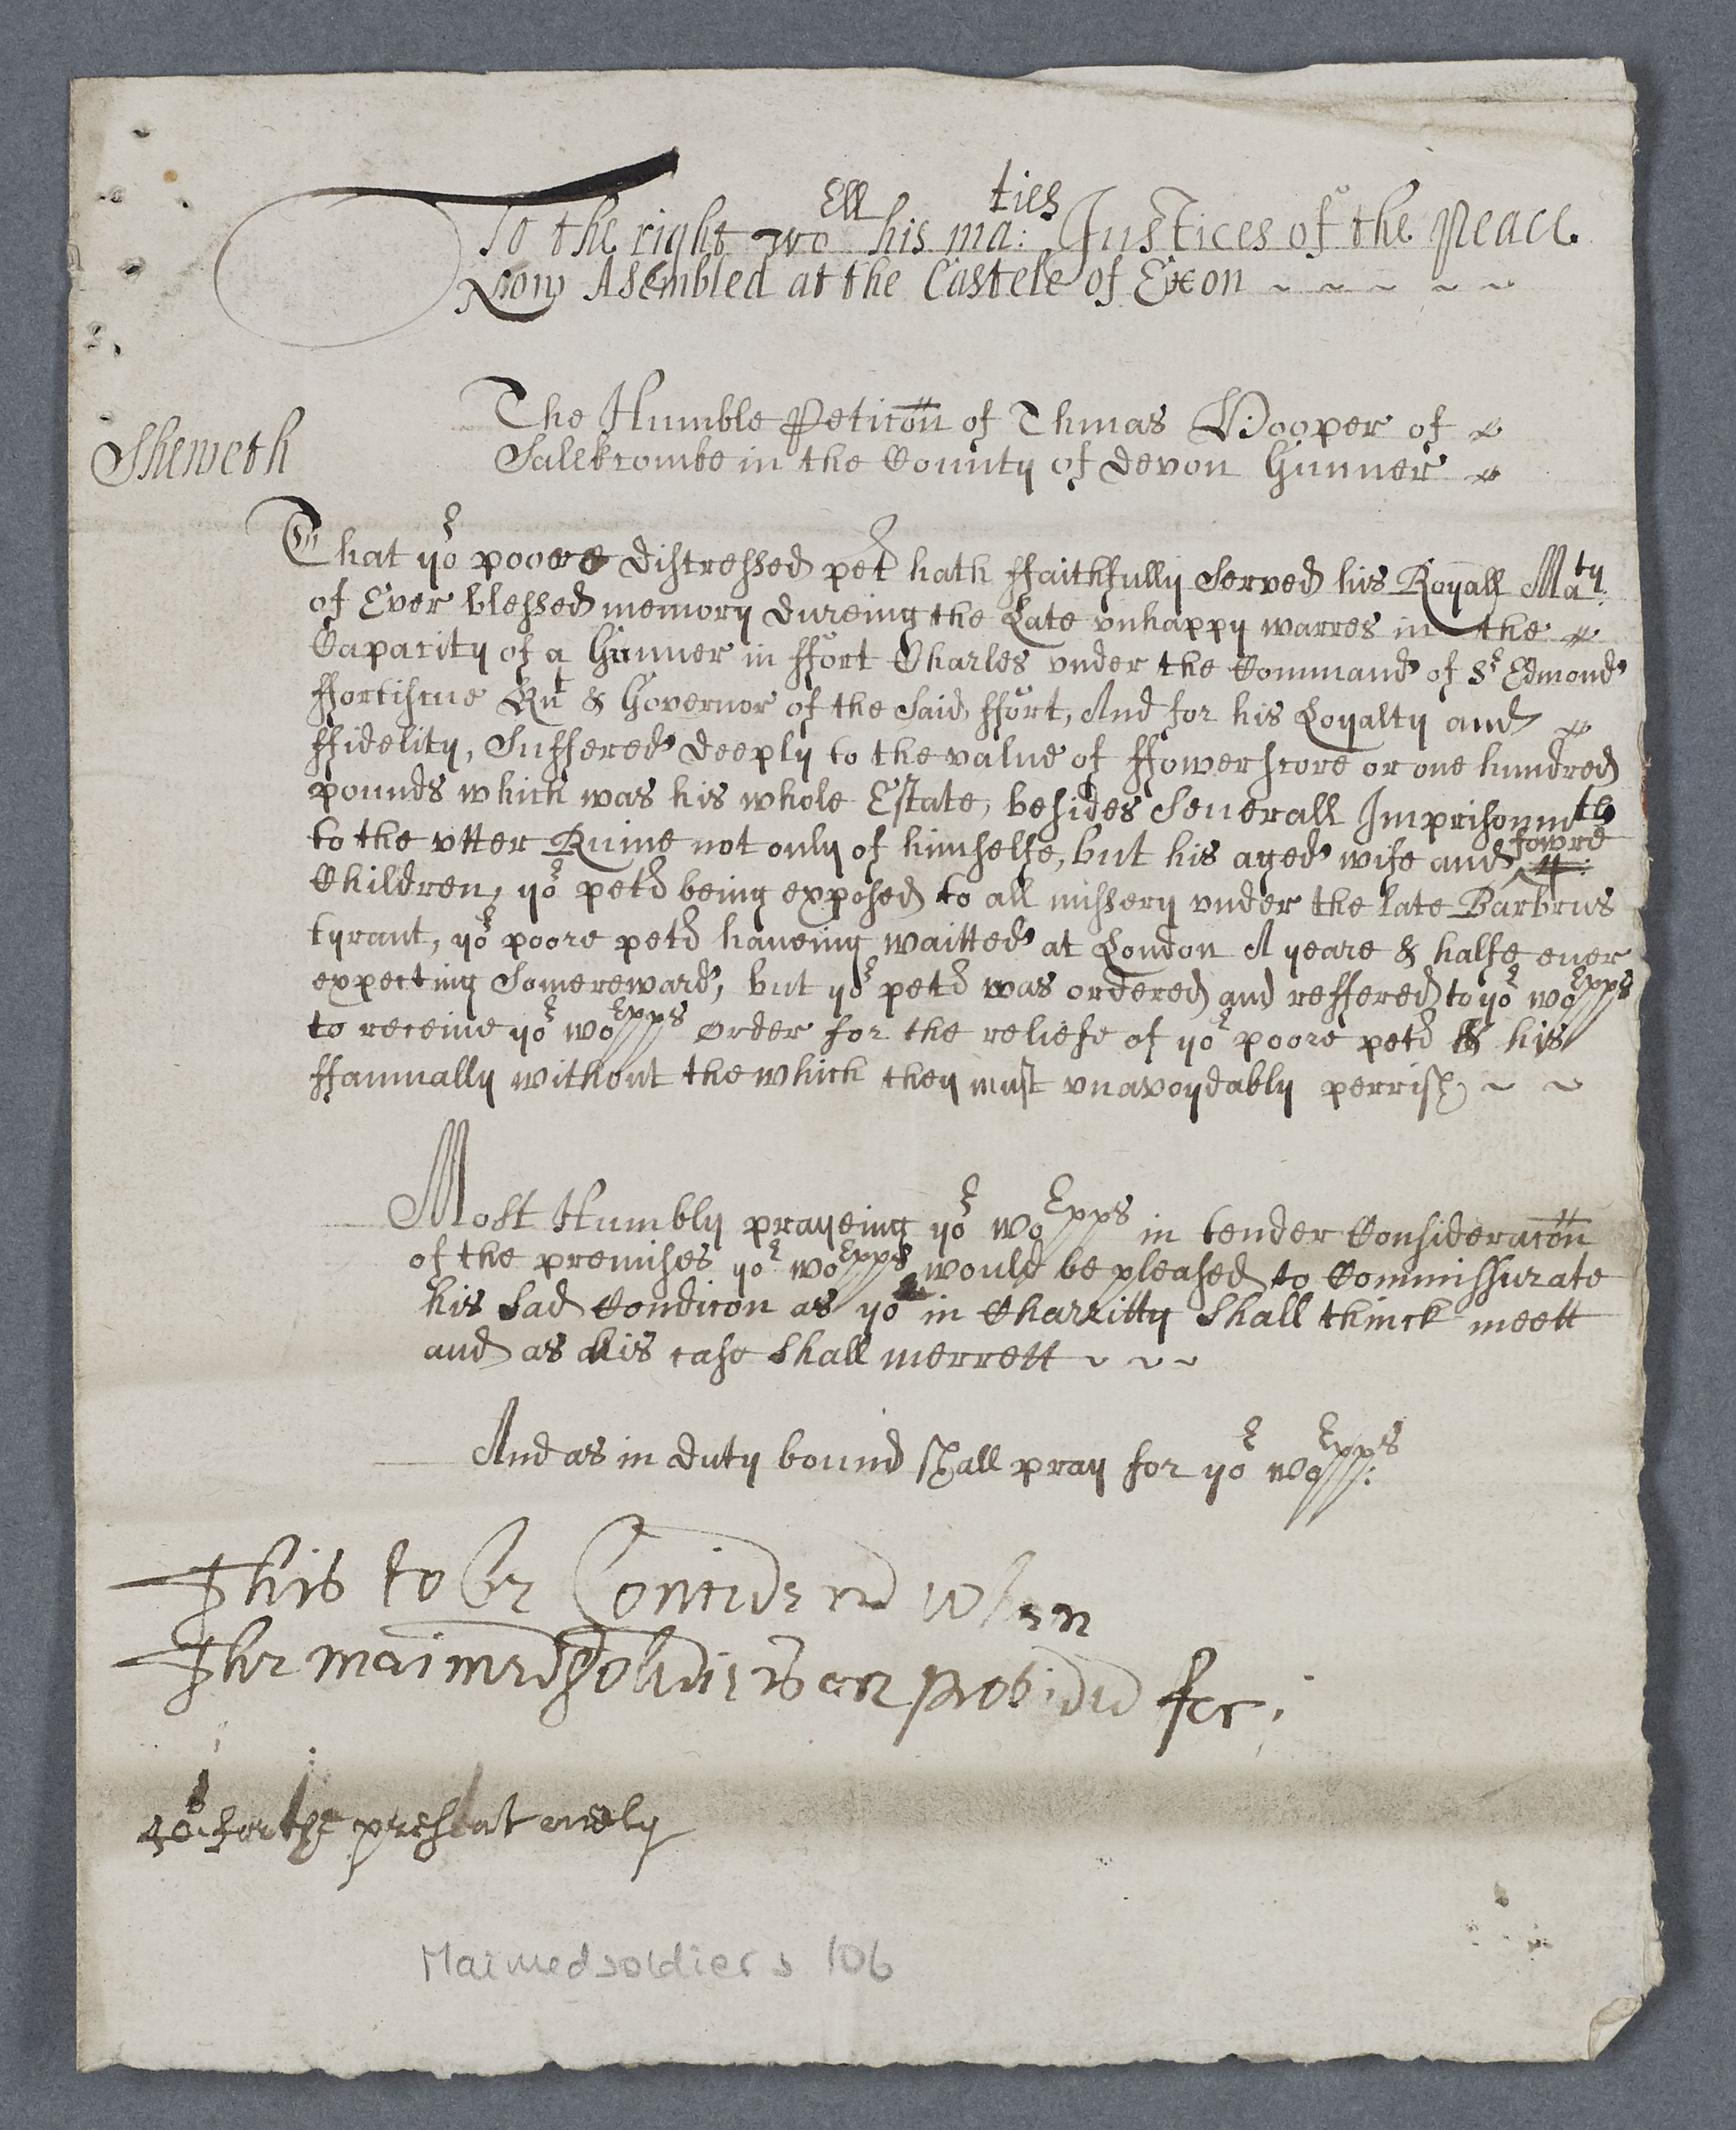 To the right wo:Ell his ma:ties Justices of the Peace
Now Asembled at the Castele of Exon
The Humble Peticon of Thmas Hooper of
Salekcombe in the County of Devon Gunner
Sheweth
That yor poore distressed petr hath ffaithfully Served his Royall Maty:
of Ever blessed memory dureing the Late vnhappy warres in the
Capacity of a Gunner in ffort Charles vnder the Command of Sr Edmond
ffortiscue Knt & Governor of the Said ffort, And for his Loyalty and
ffidelity, Suffered deeply to the value of ffowerscore or one hundred
pounds which was his whole Estate, besides Seuerall Imprisonmts
to the vtter Ruine not only of himselfe, but his aged wife and fowre
Children, yor petr being exposed to all missery vnder the late Barbrus
tyrant, yor poore petr haueing waitted at London A yeare & halfe euer
expecting Some reward, but yor petr was ordered and reffered to yor woEpps
to receiue yor woEpps order for the reliefe of yor poore petr & his
ffammally without the which they must vnavoydably perrish
Most Humbly prayeing yor woEpps in tender Consideracon
of the premises yor woEpps would be pleased to Commissurate
his Sad Condicon as yo in Charritty Shall thinck meett
and as his case Shall merrett
And as in duty bound shall pray for yor woEpps:
This to be Considered when
The maimed Soldiers ar provided for.
40s for the present onely
Maimed soldiers 106